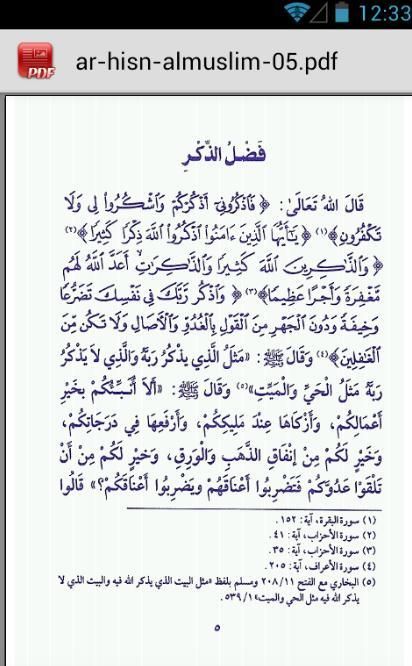 12:33
PDF
ar-hisn-almuslim-05.pdf
فَضْلُ الذِّكْرِ
قَالَ اللهُ تَعَالَىٰ: ﴿فَٱذْكُرُونِىٓ أَذْكُرْكُمْ وَٱشْكُرُوا۟ لِى وَلَا
تَكْفُرُونِ﴾(١) ﴿يَـٰٓأَيُّهَا ٱلَّذِينَ ءَامَنُوا۟ ٱذْكُرُوا۟ ٱللَّهَ ذِكْرًا كَثِيرًا﴾(٢)
﴿وَٱلذَّٰكِرِينَ ٱللَّهَ كَثِيرًا وَٱلذَّٰكِرَٰتِ أَعَدَّ ٱللَّهُ لَهُم
مَّغْفِرَةً وَأَجْرًا عَظِيمًا﴾(٣) ﴿وَٱذْكُر رَّبَّكَ فِى نَفْسِكَ تَضَرُّعًا
وَخِيفَةً وَدُونَ ٱلْجَهْرِ مِنَ ٱلْقَوْلِ بِٱلْغُدُوِّ وَٱلْـَٔاصَالِ وَلَا تَكُن مِّنَ
ٱلْغَـٰفِلِينَ﴾(٤) وَقَالَ ﷺ: «مَثَلُ الَّذِي يَذْكُرُ رَبَّهُ وَالَّذِي لاَ يَذْكُرُ
رَبَّهُ مَثَلُ الْحَيِّ وَالْمَيِّتِ»(٥) وَقَالَ ﷺ: «أَلاَ أُنَبِّئُكُمْ بِخَيْرِ
أَعْمَالِكُمْ، وَأَزْكَاهَا عِنْدَ مَلِيكِكُمْ، وَأَرْفَعِهَا فِي دَرَجَاتِكُمْ،
وَخَيْرٍ لَكُمْ مِنْ إِنْفَاقِ الذَّهَبِ وَالْوَرِقِ، وَخَيْرٍ لَكُمْ مِنْ أَنْ
تَلْقَوْا عَدُوَّكُمْ فَتَضْرِبُوا أَعْنَاقَهُمْ وَيَضْرِبُوا أَعْنَاقَكُمْ؟» قَالُوا
(١) سورة البقرة، آية: ١٥٢.
(٢) سورة الأحزاب، آية: ٤١.
(٣) سورة الأحزاب، آية: ٣٥.
(٤) سورة الأعراف، آية: ٢٠٥.
(٥) البخاري مع الفتح ٢٠٨/١١ ومسلم بلفظ «مثل البيت الذي يذكر الله فيه والبيت الذي لا
يذكر الله فيه مثل الحي والميت» ٥٣٩/١.
٥